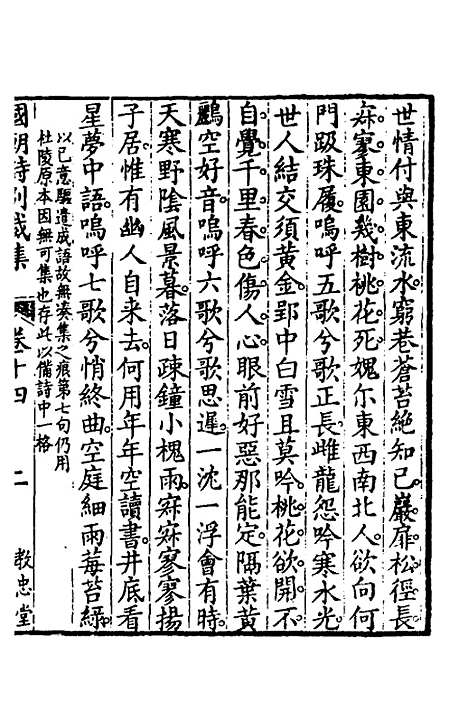 世情付與東流水窮巷蒼苔絶知己巖扉松徑長
寂寥東園幾樹桃花死媿尔東西南北人欲向何
門趿珠履嗚呼五歌兮歌正長雌龍怨吟寒水光
世人結交須黄金郢中白雪且莫吟桃花欲開不
自覺千里春色傷人心眼前好惡那能定隔葉黄
鸝空好音嗚呼六歌兮歌思遲一沈一浮會有時
天寒野陰風景暮落日疎鐘小槐雨寂寂寥寥揚
子居惟有幽人自來去何用年年空讀書井底看
星夢中語嗚呼七歌兮悄終曲空庭細雨莓苔緑
以已意驅遣成語故無湊集之痕第七句仍用
杜陵原本因無可集也存此以備詩中一格
國朝詩別裁集 卷十四 二 教忠堂